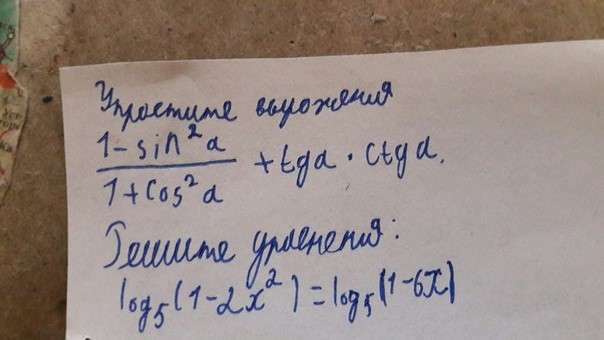 Упростите выражения
1-sin²α / 1+cos²α + tgα · ctgα.
Решите уровнения:
log₅(1-2x²)=log₅(1-6x)